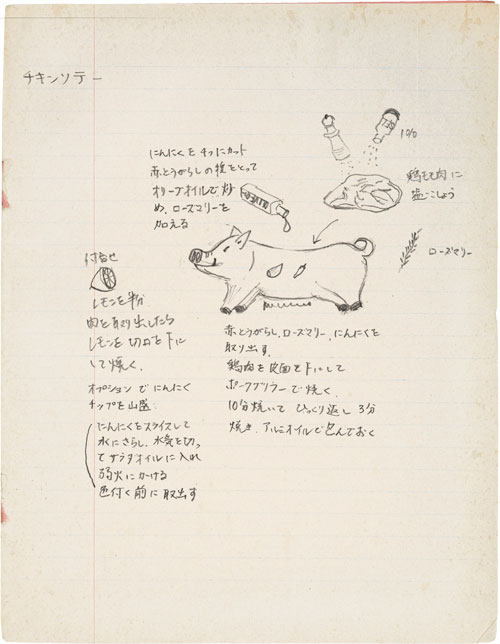 チキンソテー
にんにくを4つにカット
赤とうがらしの種をとって
オリーブオイルで炒
め、ローズマリーを
加える
1%
鶏モモ肉に
塩・こしょう
ローズマリー
付合せ
レモンを粉
肉を取り出したら
レモンを切口を下に
して焼く。
オプションでにんにく
チップを山盛
にんにくをスライスして
水にさらし、水気を切っ
てサラダオイルに入れ
弱火にかける
色付く前に取出す
赤とうがらし、ローズマリー、にんにくを
取り出す。
鶏肉を皮面を下にして
ポークグリラーで焼く。
10分焼いてひっくり返し3分
焼き、アルミオイルで包んでおく